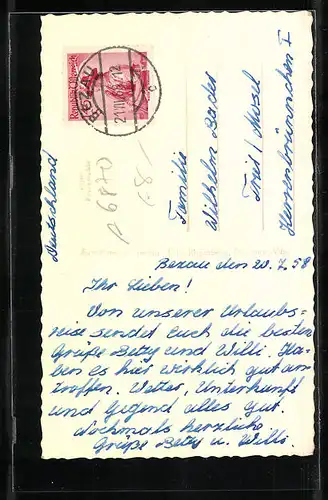 Republik Österreich
BEZAU
A 6870
8,-
Familie
Wilhelm Bades
Treis / Mosel
Herrenbrünnchen I
Deutschland
Bezau den 20.7.58
Ihr Lieben!
Von unserer Urlaubs-
reise sendet Euch die besten
Grüße Betzy und Willi. Ha-
ben es hier wirklich gut an-
troffen. Wetter, Unterkunft
und Gegend alles gut.
Nochmals herzliche
Grüße Betzy u. Willi.